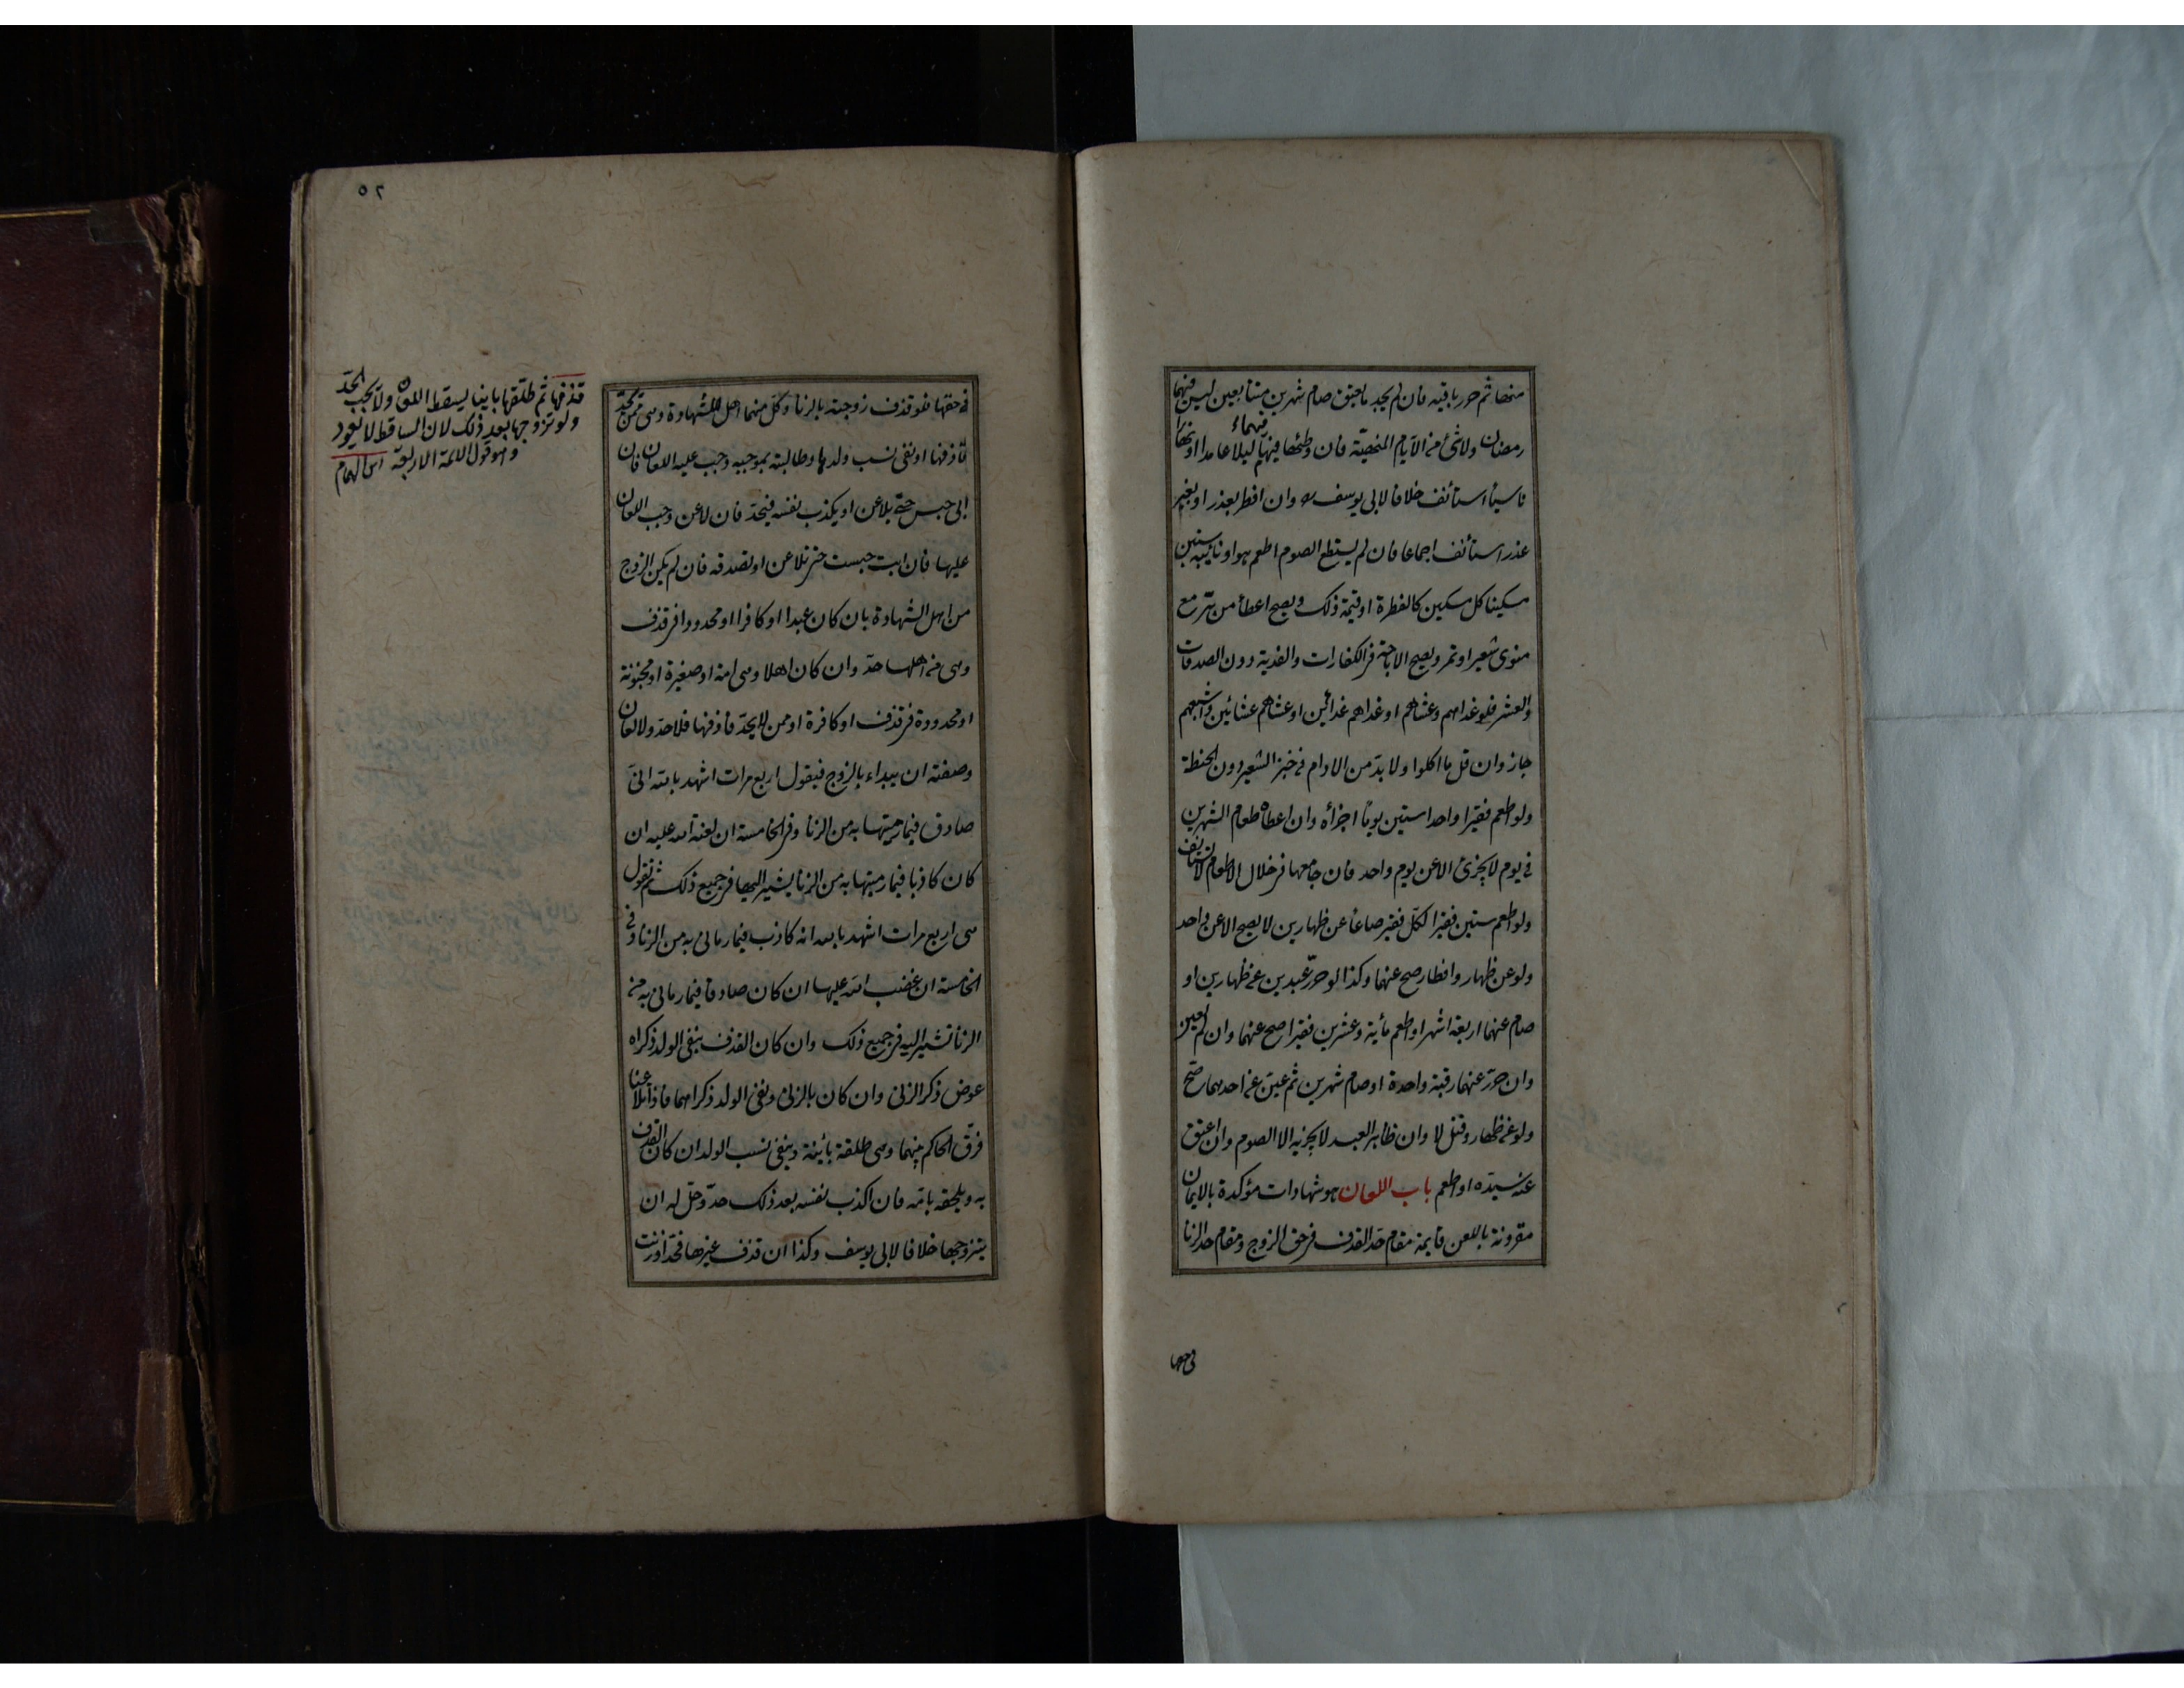 منها ثم حرر باقيه فان لم يجد ما يعتق صام شهرين متتابعين ليس فيهما
رمضان ولا شئ من الايام المنهية فان وطئها فيهما ليلا عامدا او نهارا
ناسيا استأنف خلافا لابى يوسف وان افطر بعذر او بغير
عذر استأنف اجماعا فان لم يستطع الصوم اطعم هو او نائبه ستين
مسكينا كل مسكين كالفطرة او قيمة ذلك ويصح اعطأ من بر مع
منوى شعير او تمر ويصح الاباحة فى الكفارات والفدية دون الصدقات
والعشر فلو غداهم وعشاهم او غداهم غدائين او عشاهم عشائين واشبعهم
جاز وان قل ما اكلوا ولا بد من الادام فى خبز الشعير دون الحنطة
ولو اطعم فقيرا واحدا ستين يوما اجزأه وان اعطاه طعام الشهرين
فى يوم لا يجزئ الا عن يوم واحد فان جامعها فى خلال الاطعام لا يستأنف
ولو اطعم ستين فقيرا لكل فقير صاعا عن ظهارين لا يصح الا عن واحد
ولو عن ظهار وافطار صح عنهما وكذا لو حرر عبدين عن ظهارين او
صام عنهما اربعة اشهر او اطعم مأية وعشرين فقيرا صح عنهما وان لم يعين
وان حرر عنهما رقبة واحدة او صام شهرين ثم عين عن احدهما صح
ولو عن ظهار وقتل لا وان ظاهر العبد لا يجزيه الا الصوم وان اعتق
عنه سيده او اطعم باب اللعان هو شهادات مؤكدة بالايمان
مقرونة باللعن قايمة مقام حد القذف فى حق الزوج ومقام حد الزنا
فى حقها
٥٢
فى حقها فلو قذف زوجته بالزنا وكل منهما اهل للشهادة وهى ممن يحد
قاذفها او نفى نسب ولدها وطالبته بموجبه وجب عليه اللعان فان
ابى حبس حتى يلاعن او يكذب نفسه فيحد فان لاعن وجب اللعان
عليها فان ابت حبست حتى تلاعن او تصدقه فان لم يكن الزوج
من اهل الشهادة بان كان عبدا او كافرا او محدودا فى قذف
وهى من اهلها حد وان كان اهلا وهى امة او صغيرة او مجنونة
او محدودة فى قذف او كافرة او ممن لا يحد قاذفها فلا حد ولا لعان
وصفته ان يبداء بالزوج فيقول اربع مرات اشهد بالله انى
صادق فيما رميتها به من الزنا وفى الخامسة ان لعنة الله عليه ان
كان كاذبا فيما رميتها به من الزنا يشير اليها فى جميع ذلك ثم تقول
هى اربع مرات اشهد بالله انه كاذب فيما رمانى به من الزنا وفى
الخامسة ان غضب الله عليها ان كان صادقا فيما رمانى به من
الزنا تشير اليه فى جميع ذلك وان كان القذف بنفى الولد ذكراه
عوض ذكر الزنى وان كان بالزنى ونفى الولد ذكراهما فاذا تلاعنا
فرق الحاكم بينهما وهى طلقة بائنة وينفى نسب الولد ان كان القذف
به ويلحقه بامه فان اكذب نفسه بعد ذلك حد وحل له ان
يتزوجها خلافا لابى يوسف وكذا ان قذف غيرها فحد او زنت
قذفها ثم طلقها باينا يسقط اللعان ولا يجب الحد
ولو تزوجها بعد ذلك لان الساقط لا يعود
وهو قول الائمة الاربعة ابن الهمام